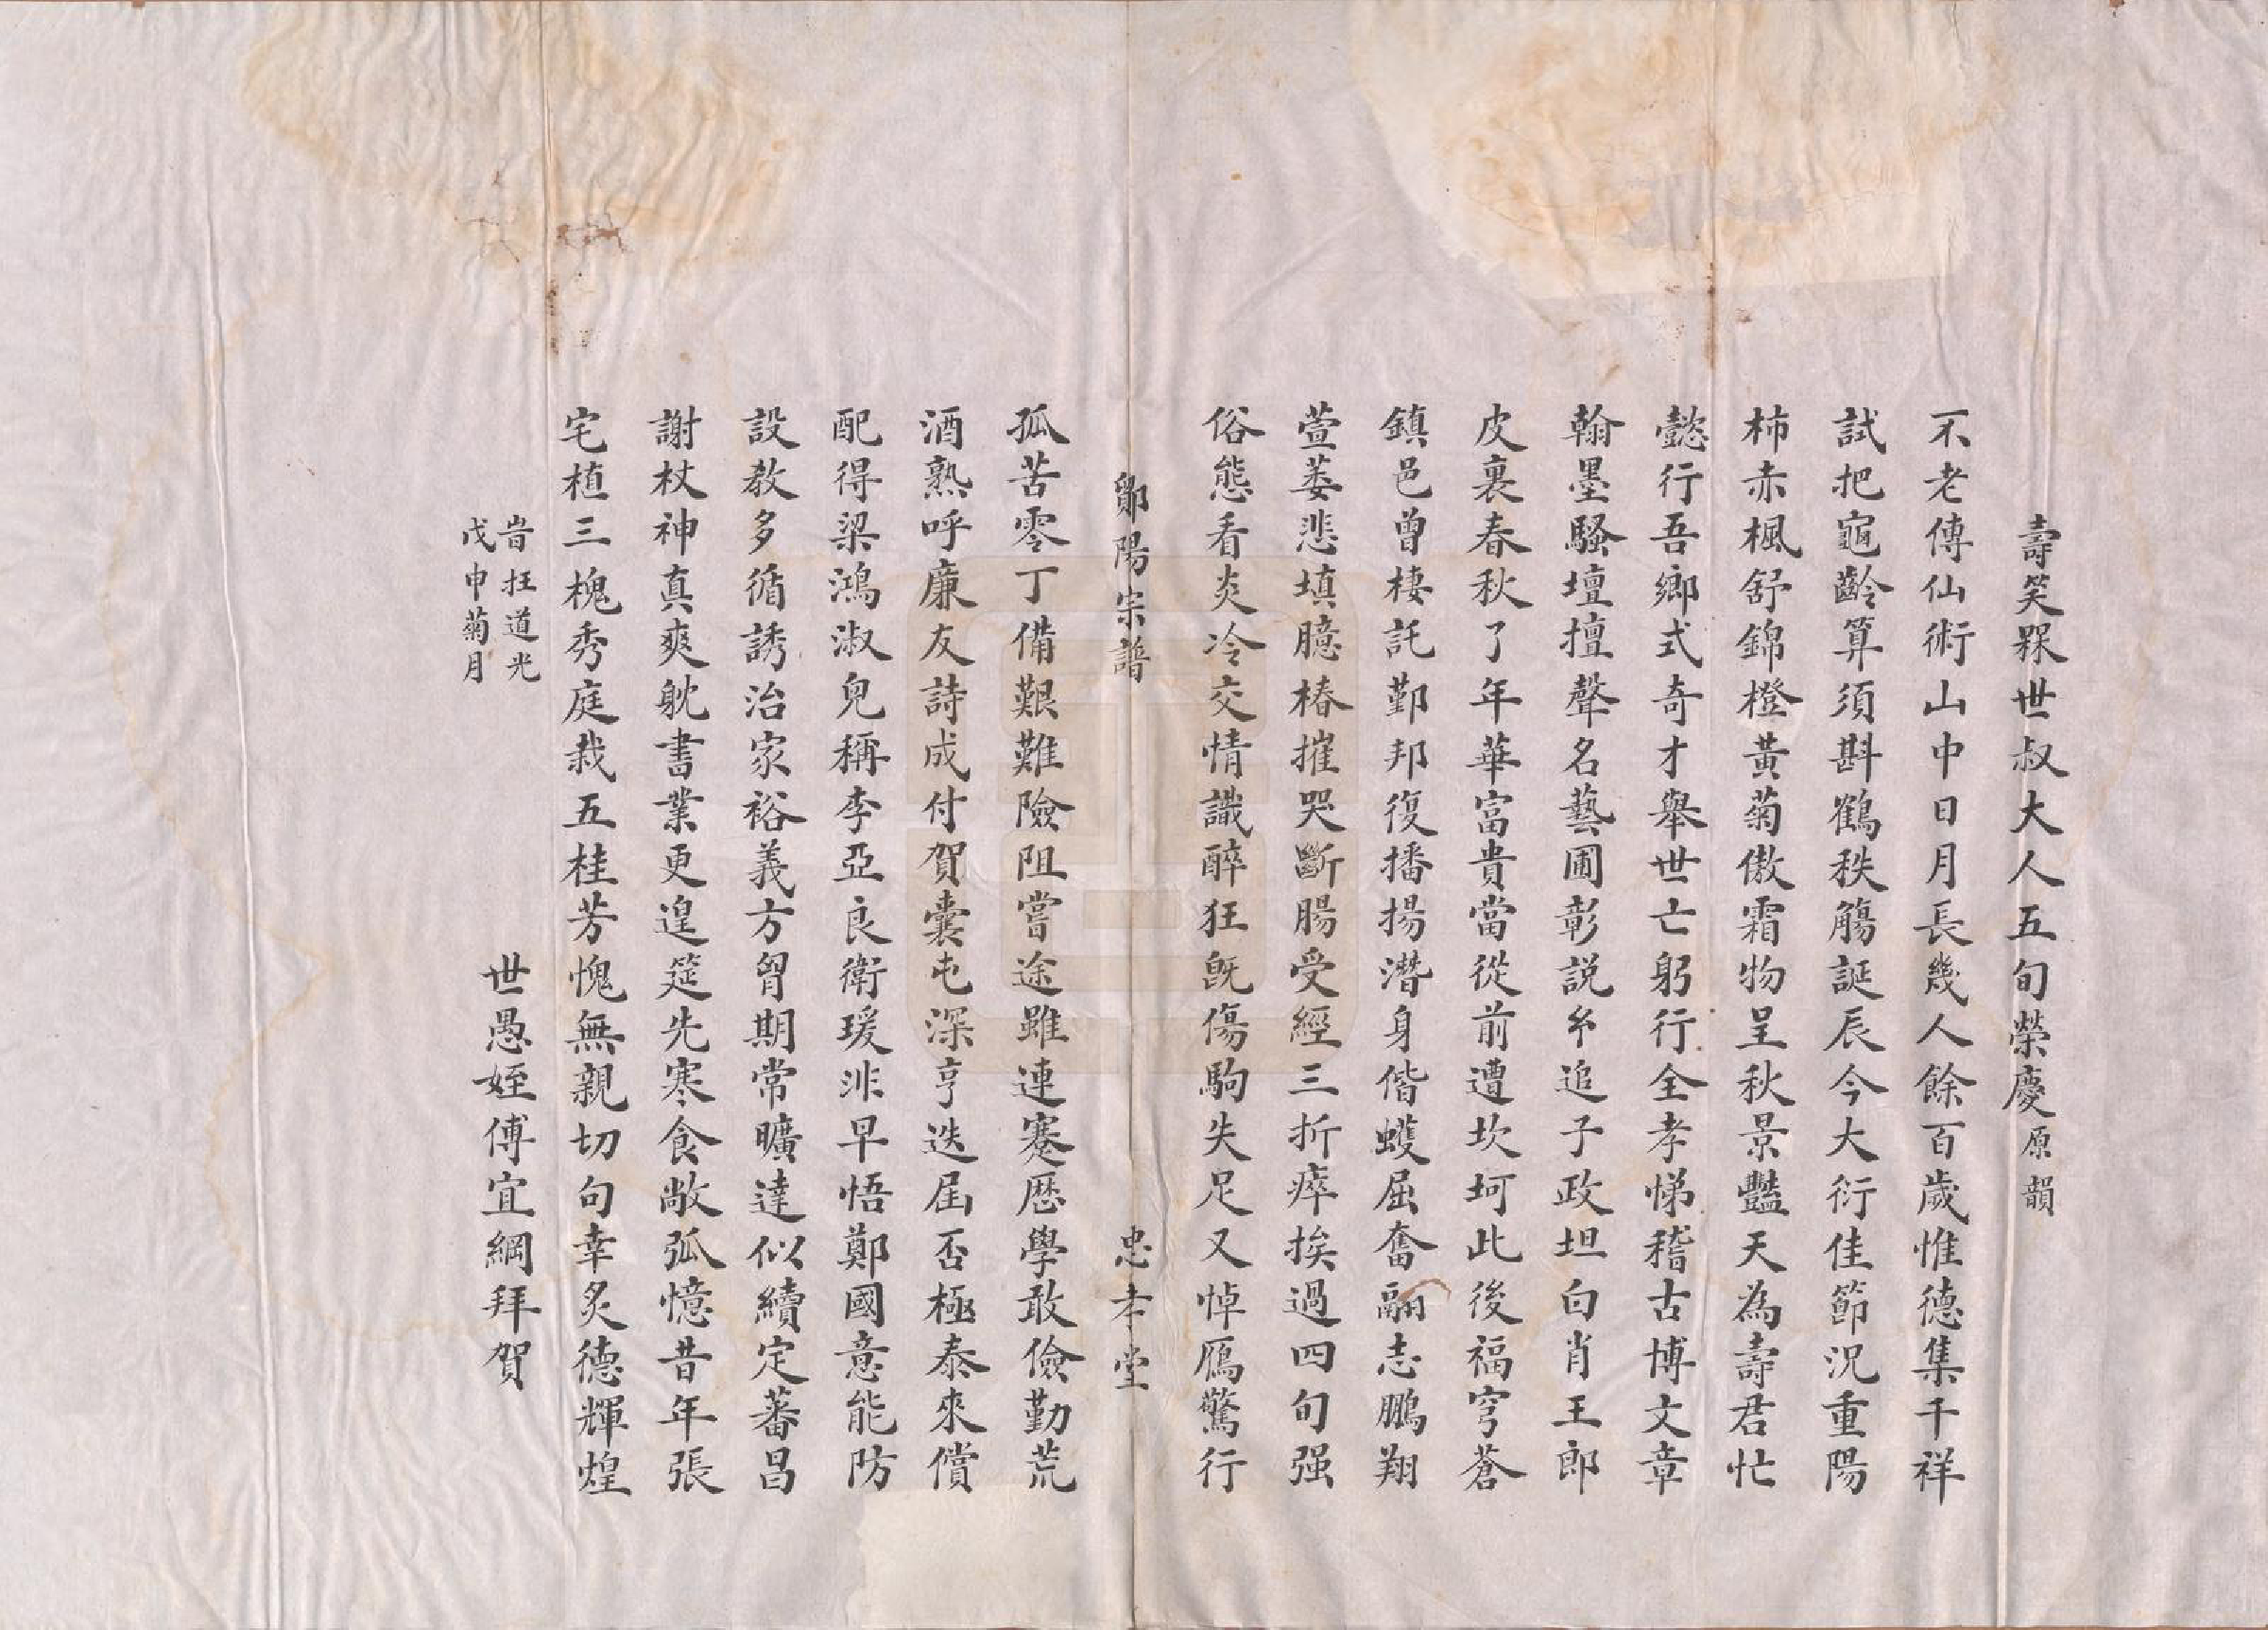 壽笑槑世叔大人五旬榮慶原韻
不老傳仙術山中日月長幾人餘百歲惟德集千祥
試把龜齡算須斟鶴秩觴誕辰今大衍佳節況重陽
柿赤楓舒錦橙黃菊傲霜物呈秋景豔天為壽君忙
懿行吾鄉式奇才舉世亡躬行全孝悌稽古博文章
翰墨騷壇擅聲名藝圃彰説乡追子政坦白肖王郎
皮裏春秋了年華富貴當從前遭坎坷此後福穹蒼
鎮邑曾棲託鄞邦復播揚潛身偕蠖屈奮翮志鵬翔
萱萎悲填臆椿摧哭斷腸受經三折瘁挨過四旬强
俗態看炎冷交情識醉狂既傷駒失足又悼鴈驚行
鄮陽宗譜 忠孝堂
孤苦零丁備艱難險阻嘗途雖連蹇歷學敢儉勤荒
酒熟呼廉友詩成付賀囊屯深亨迭屆否極泰來償
配得梁鴻淑兒稱李亞良衛瑗非早悟鄭國意能防
設教多循誘治家裕義方胷期常曠達似續定蕃昌
謝杖神真爽躭書業更遑筵先寒食敞弧憶昔年張
宅植三槐秀庭栽五桂芳愧無親切句幸炙德輝煌
旹抂道光
戊申菊月
世愚姪傅宜綱拜賀